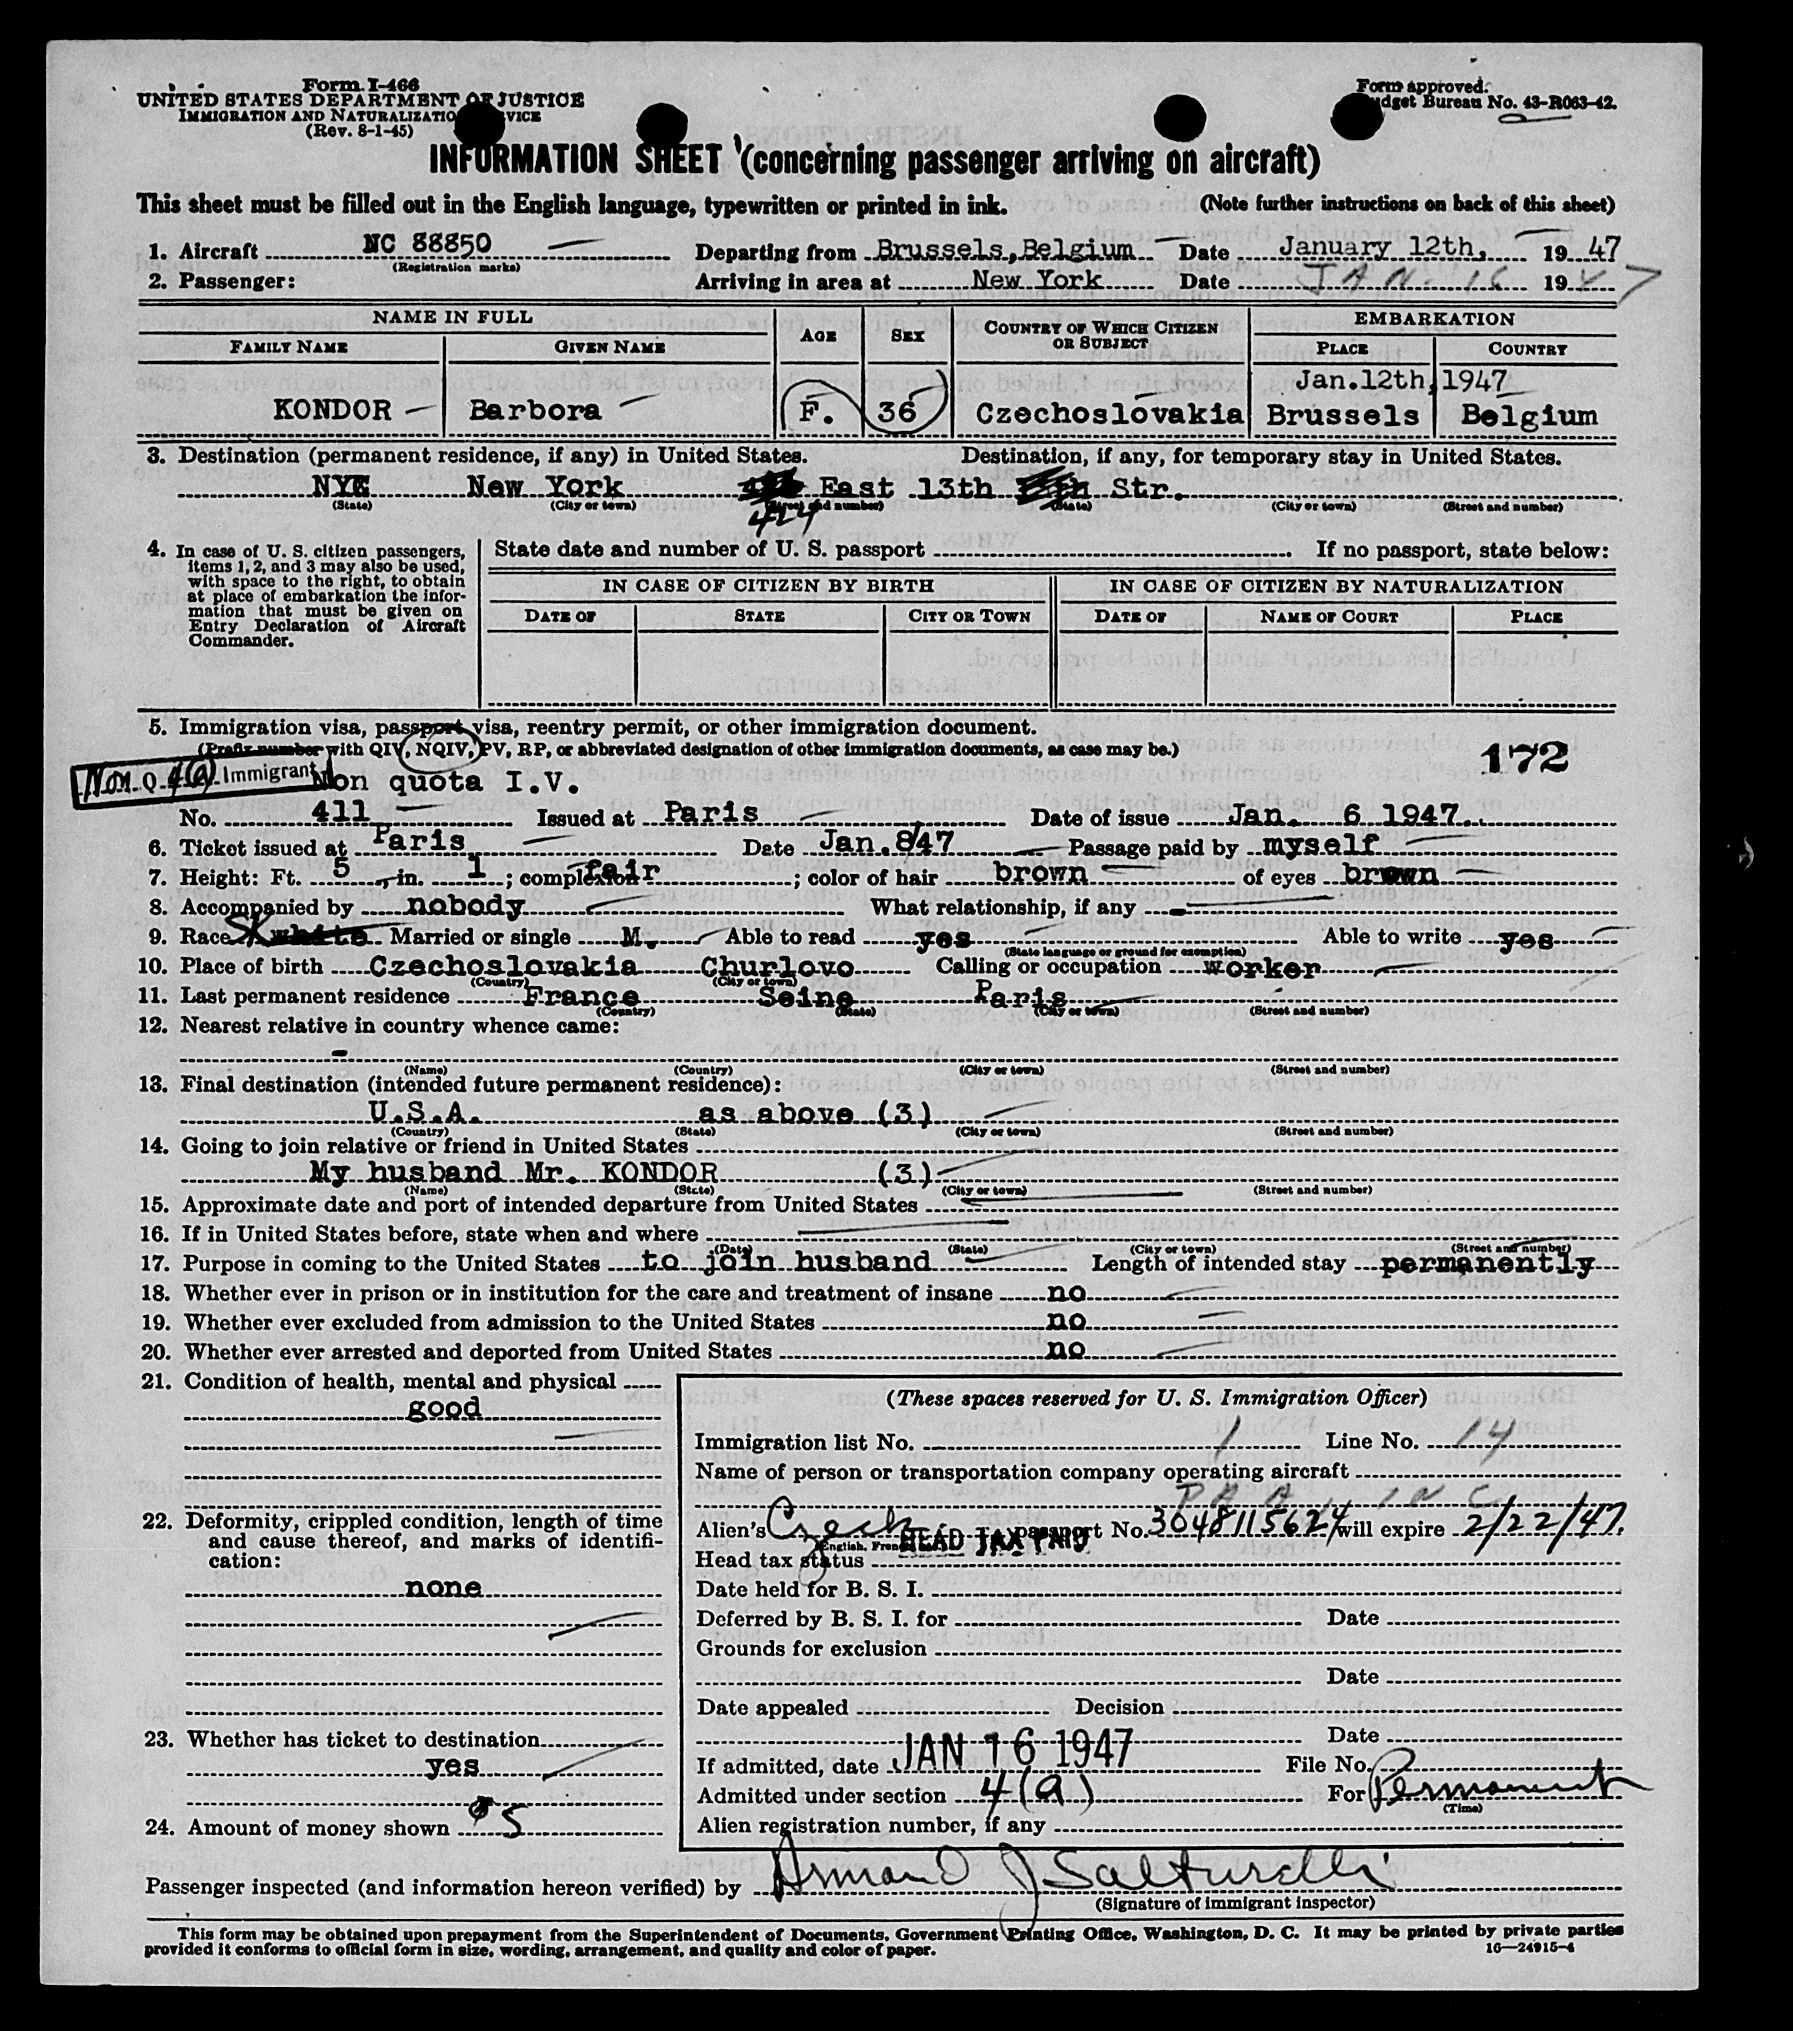 Form I-466
UNITED STATES DEPARTMENT OF JUSTICE
IMMIGRATION AND NATURALIZATION SERVICE
(Rev. 8-1-45)
Form approved.
Budget Bureau No. 43-R063-42.
INFORMATION SHEET (concerning passenger arriving on aircraft)
This sheet must be filled out in the English language, typewritten or printed in ink. (Note further instructions on back of this sheet)
1. Aircraft NC 88850 Departing from Brussels, Belgium Date January 12th, 19 47
(Registration marks)
2. Passenger: Arriving in area at New York Date JAN. 16 19 47
NAME IN FULL AGE SEX COUNTRY OF WHICH CITIZEN OR SUBJECT EMBARKATION
FAMILY NAME GIVEN NAME PLACE COUNTRY
Jan.12th,1947
KONDOR Barbora F. 36 Czechoslovakia Brussels Belgium
3. Destination (permanent residence, if any) in United States. Destination, if any, for temporary stay in United States.
NYC New York East 13th Str.
(State) (City or town) (Street and number) (State) (City or town) (Street and number)
424
4. In case of U. S. citizen passengers, items 1, 2, and 3 may also be used, with space to the right, to obtain at place of embarkation the information that must be given on Entry Declaration of Aircraft Commander.
State date and number of U. S. passport . If no passport, state below:
IN CASE OF CITIZEN BY BIRTH IN CASE OF CITIZEN BY NATURALIZATION
DATE OF STATE CITY OR TOWN DATE OF NAME OF COURT PLACE
5. Immigration visa, passport visa, reentry permit, or other immigration document.
(Prefix number with QIV, NQIV, PV, RP, or abbreviated designation of other immigration documents, as case may be.) 172
Non Q 4(a) Immigrant
Non quota I.V.
No. 411 Issued at Paris Date of issue Jan. 6 1947.
6. Ticket issued at Paris Date Jan.8/47 Passage paid by myself
7. Height: Ft. 5, in. 1; complexion fair; color of hair brown of eyes brown
8. Accompanied by nobody What relationship, if any -
9. Race SK white Married or single M. Able to read yes Able to write yes
(State language or ground for exemption)
10. Place of birth Czechoslovakia Churlovo Calling or occupation worker
(Country) (City or town)
11. Last permanent residence France Seine Paris
(Country) (State) (City or town) (Street and number)
12. Nearest relative in country whence came:
-
(Name) (Country) (City or town) (Street and number)
13. Final destination (intended future permanent residence):
U.S.A. as above (3)
(Country) (State) (City or town) (Street and number)
14. Going to join relative or friend in United States
My husband Mr. KONDOR (3)
(Name) (State) (City or town) (Street and number)
15. Approximate date and port of intended departure from United States
16. If in United States before, state when and where
(Date) (State) (City or town) (Street and number)
17. Purpose in coming to the United States to join husband Length of intended stay permanently
18. Whether ever in prison or in institution for the care and treatment of insane no
19. Whether ever excluded from admission to the United States no
20. Whether ever arrested and deported from United States no
21. Condition of health, mental and physical
good
22. Deformity, crippled condition, length of time and cause thereof, and marks of identification:
none
23. Whether has ticket to destination
yes
24. Amount of money shown $5
(These spaces reserved for U. S. Immigration Officer)
Immigration list No. 1 Line No. 14
Name of person or transportation company operating aircraft
P A A, INC
Alien's Czech passport No. 3048115624 will expire 2/22/47.
HEAD TAX PAID
Head tax status
Date held for B. S. I.
Deferred by B. S. I. for Date
Grounds for exclusion
Date
Date appealed Decision
Date
If admitted, date JAN 16 1947 File No.
Admitted under section 4(a) For Permanent
(Time)
Alien registration number, if any
Passenger inspected (and information hereon verified) by Armand J Salturelli
(Signature of immigrant inspector)
This form may be obtained upon prepayment from the Superintendent of Documents, Government Printing Office, Washington, D. C. It may be printed by private parties
provided it conforms to official form in size, wording, arrangement, and quality and color of paper. 16—24915-4